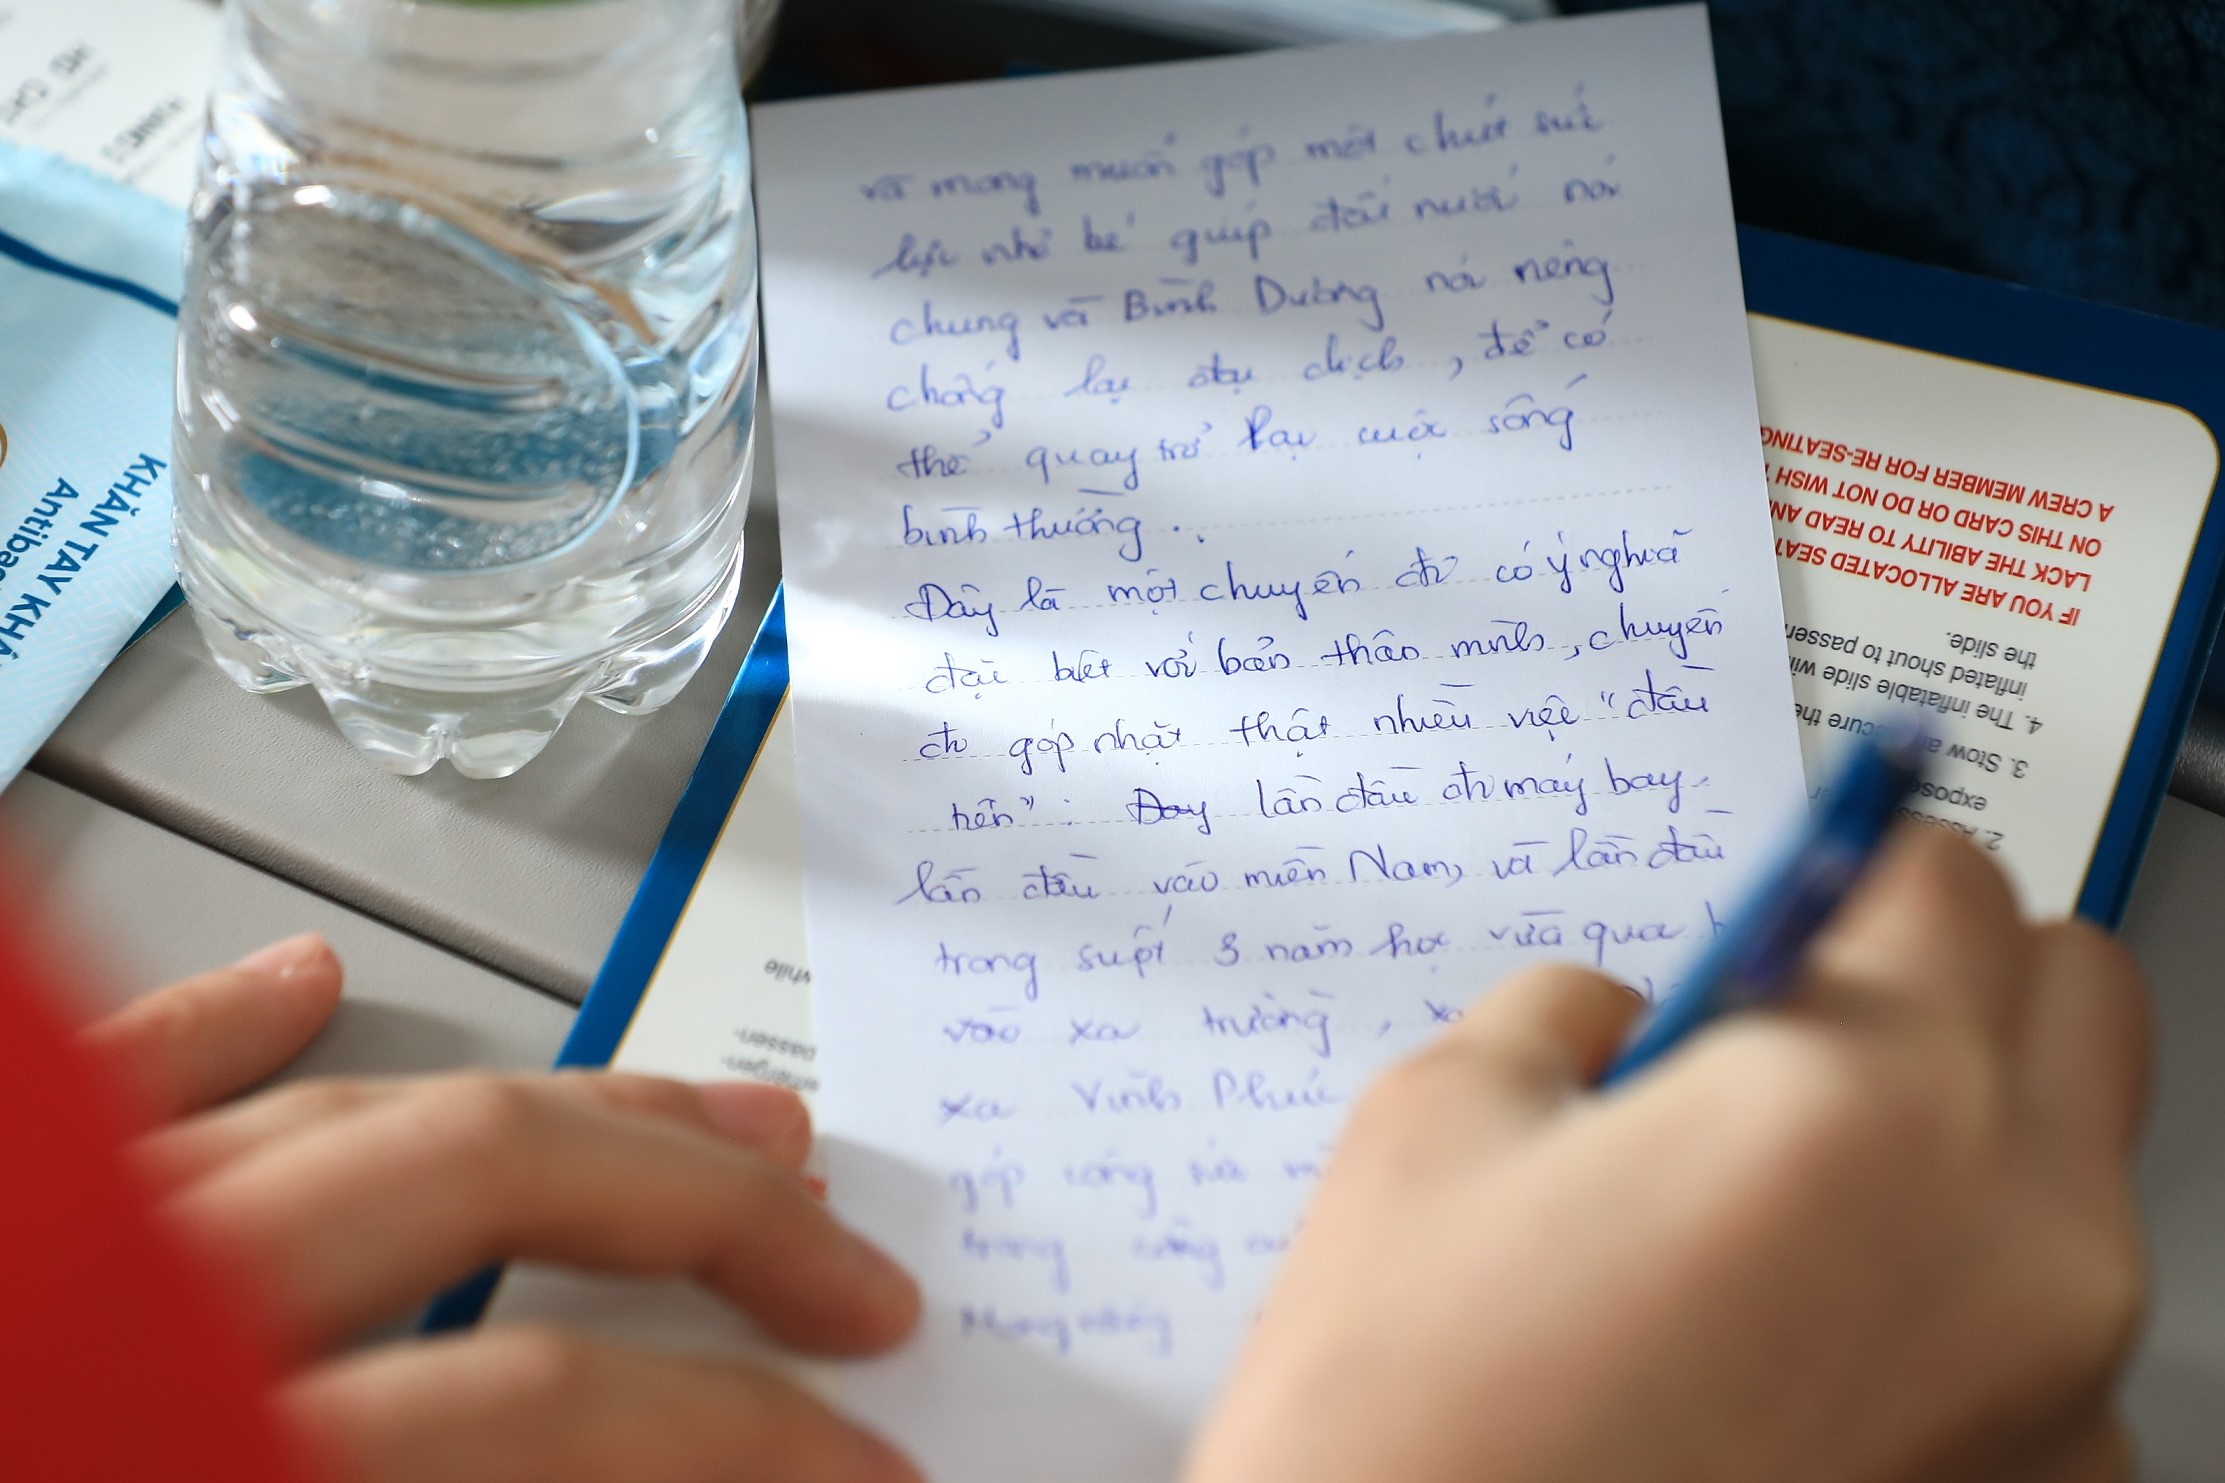 và mong muốn góp một chút sức
lực nhỏ bé giúp đất nước nói
chung và Bình Dương nói riêng
chống lại đại dịch, để có
thể quay trở lại cuộc sống
bình thường.
Đây là một chuyến đi có ý nghĩa
đặc biệt với bản thân mình, chuyến
đi góp nhặt thật nhiều việc "đầu
tiên": Day lần đầu đi máy bay
lần đầu vào miền Nam, và lần đầu
trong suốt 3 năm học vừa qua
vào xa trường,
xa Vĩnh Phúc
góp công sức
trong công
Mong
KHĂN TAY
Antiba
IF YOU ARE ALLOCATED SEAT
LACK THE ABILITY TO READ AN
ON THIS CARD OR DO NOT WISH
A CREW MEMBER FOR RE-SEATING
the slide.
inflated shout to passen
4. The inflatable slide wi
3. Stow
2.
while
passen-